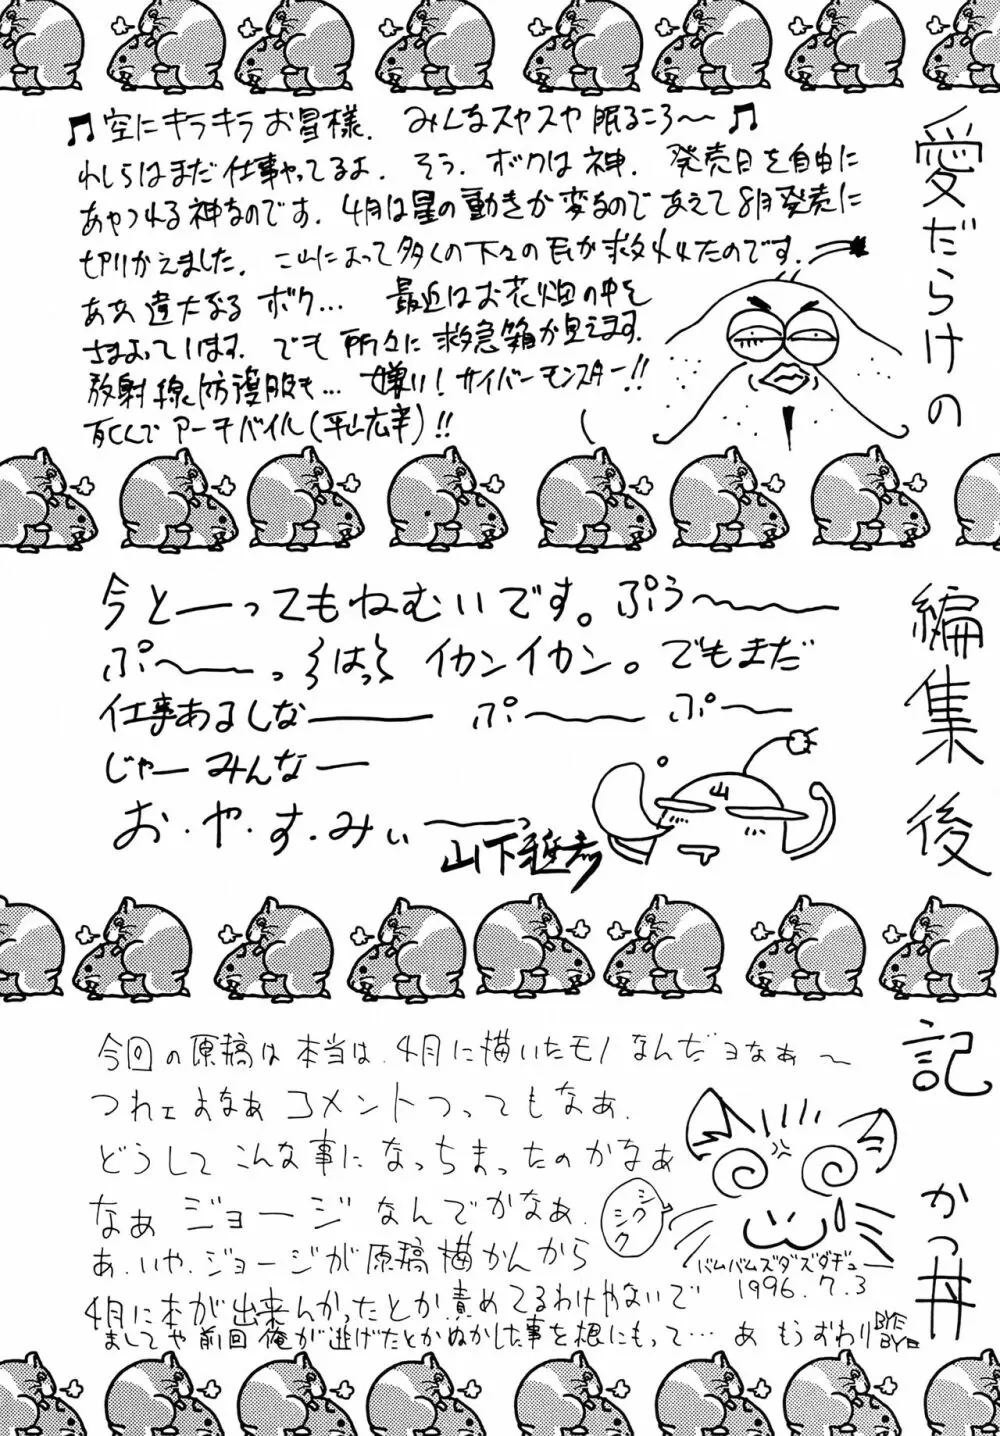 愛だらけの
編集後
記　かつ丼
♫空にキラキラお星様．みんなスヤスヤ眠るころ〜♫
わしらはまだ仕事やってるよ．そう．ボクは神．発売日を自由に
あやつれる神なのです．4月は星の動きが変なのであえて8月発売に
切りかえました．これによって多くの下々の民が救われたのです．
ああ偉大なるボク…最近はお花畑の中を
さまよっています．でも所々に救急箱が見えます．
放射線防護服も…嫌い！サイバーモンスター!!
死んでアーチバイル(平山広幸)!!
今とーってもねむいです。ぷぅ〜〜
ぷ〜〜っ はっ イカンイカン。でもまだ
仕事あるしな―― ぷ〜〜 ぷ〜〜
じゃー みんなー
お・や・す・みぃ――っ
山下雅彦
山
今回の原稿は本当は．4月に描いたモノなんだヨなぁ〜
つれェよなぁ コメントつってもなぁ．
どうして こんな事になっちまったのかなぁ
なぁ ジョージ なんでかなぁ．
シクシク
あ．いや．ジョージが原稿描かんから
4月に本が出来んかったとか責めてるわけやないで
ましてや前回俺が逃げたとかぬかした事を根にもって… あ もうおわり BYE BYE
バムバムズダズダヂュー
1996.7.3